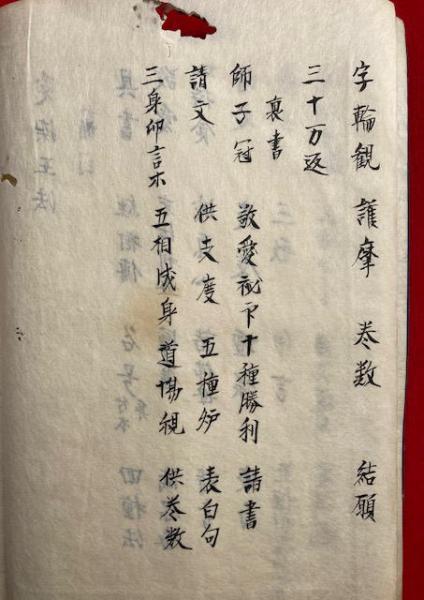 字輪観 護摩 巻数 結願
三十万返
裏書
師子冠 敬愛祕下十種勝利 請書
請文 供支度 五種炉 表白句
三身印言ホ 五相成身 道場観 供巻数